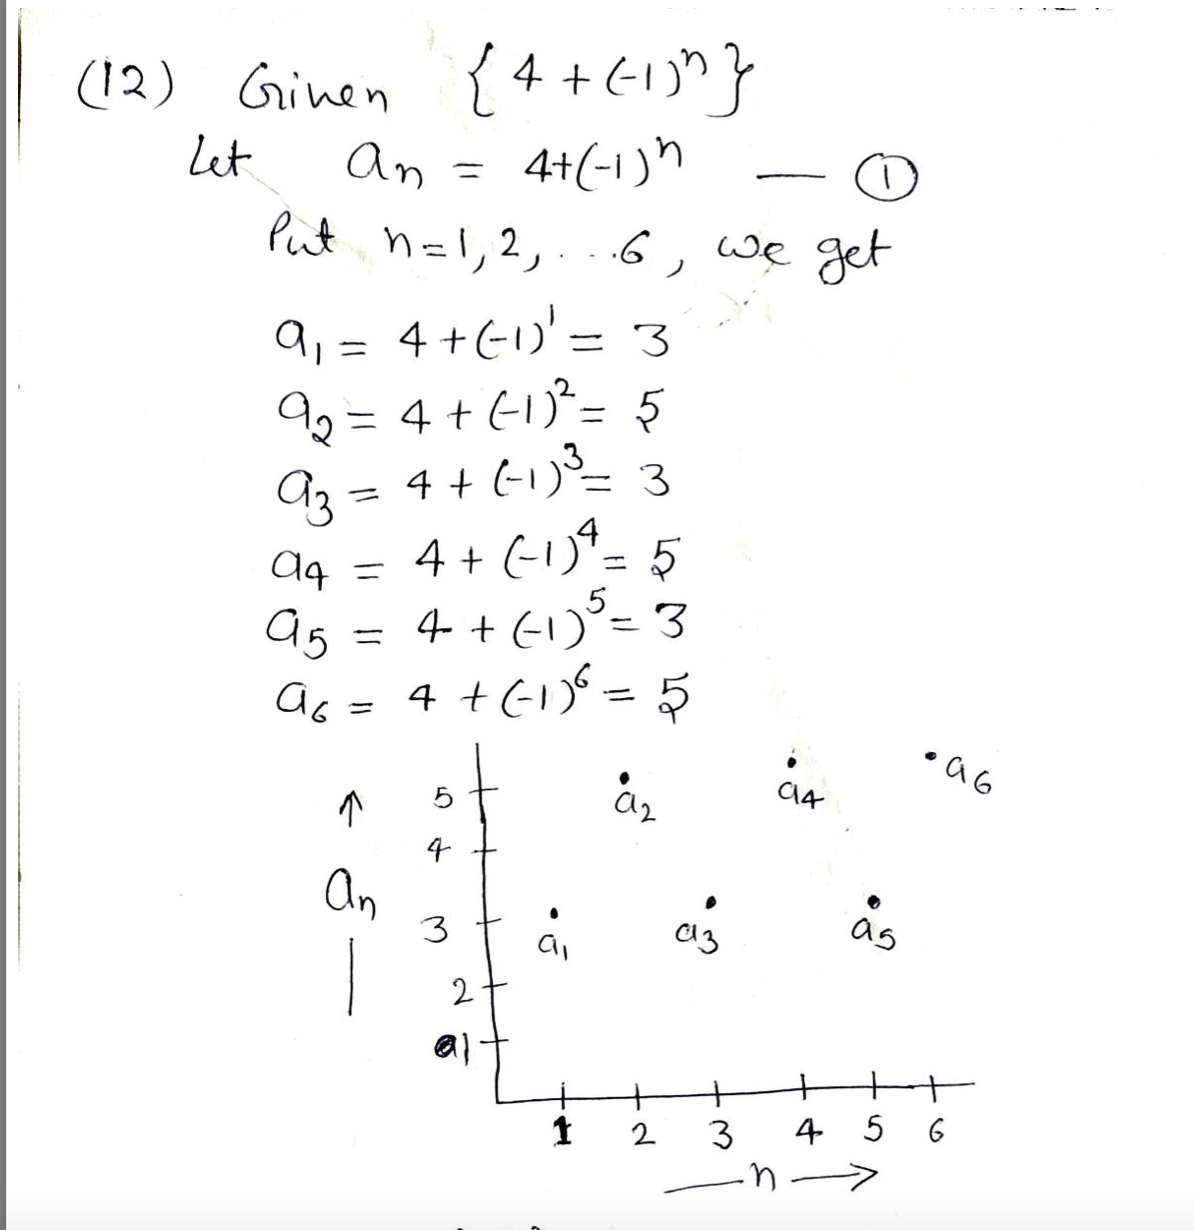 (12) Given {4 + (-1)ⁿ}
Let aₙ = 4+(-1)ⁿ — ①
Put n=1,2,...6, we get
a₁ = 4+(-1)¹ = 3
a₂ = 4 + (-1)² = 5
a₃ = 4 + (-1)³ = 3
a₄ = 4 + (-1)⁴ = 5
a₅ = 4 + (-1)⁵ = 3
a₆ = 4 + (-1)⁶ = 5
↑ 5 a₂ a₄ a₆
4
aₙ 3 a₁ a₃ a₅
2
1
1 2 3 4 5 6
—n→